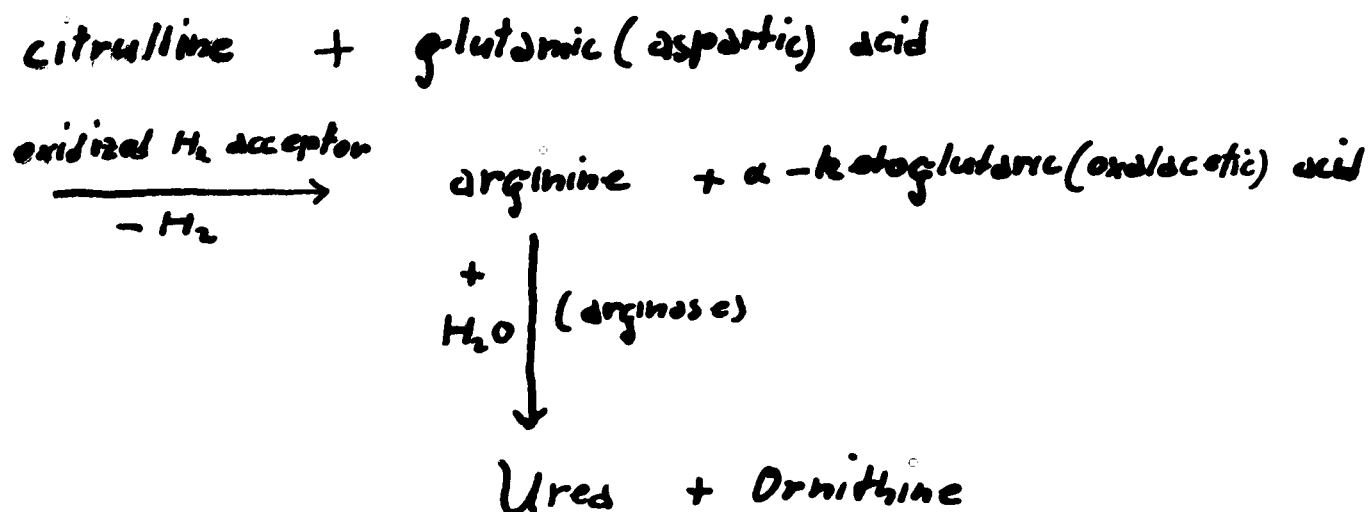 citrulline + glutamic (aspartic) acid
oxidized H₂ acceptor
arginine + α-ketoglutaric (oxalacetic) acid
- H₂
+
H₂O (arginase)
Urea + Ornithine